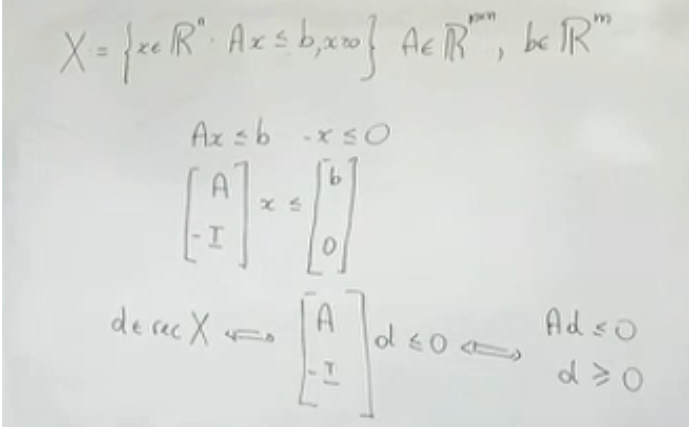 X = {x ∈ ℝⁿ : Ax ≤ b, x ≥ 0} A ∈ ℝᵐˣⁿ, b ∈ ℝᵐ
Ax ≤ b -x ≤ 0
[A; -I] x ≤ [b; 0]
d ∈ rec X ⟺ [A; -I] d ≤ 0 ⟺ Ad ≤ 0
d ≥ 0